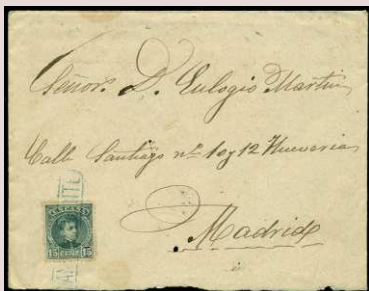 Señor. D. Eulogio Martin
Calle Santiago nº 10 y 12 Hueveria
Madrid
ESPAÑA
15 CENT 15